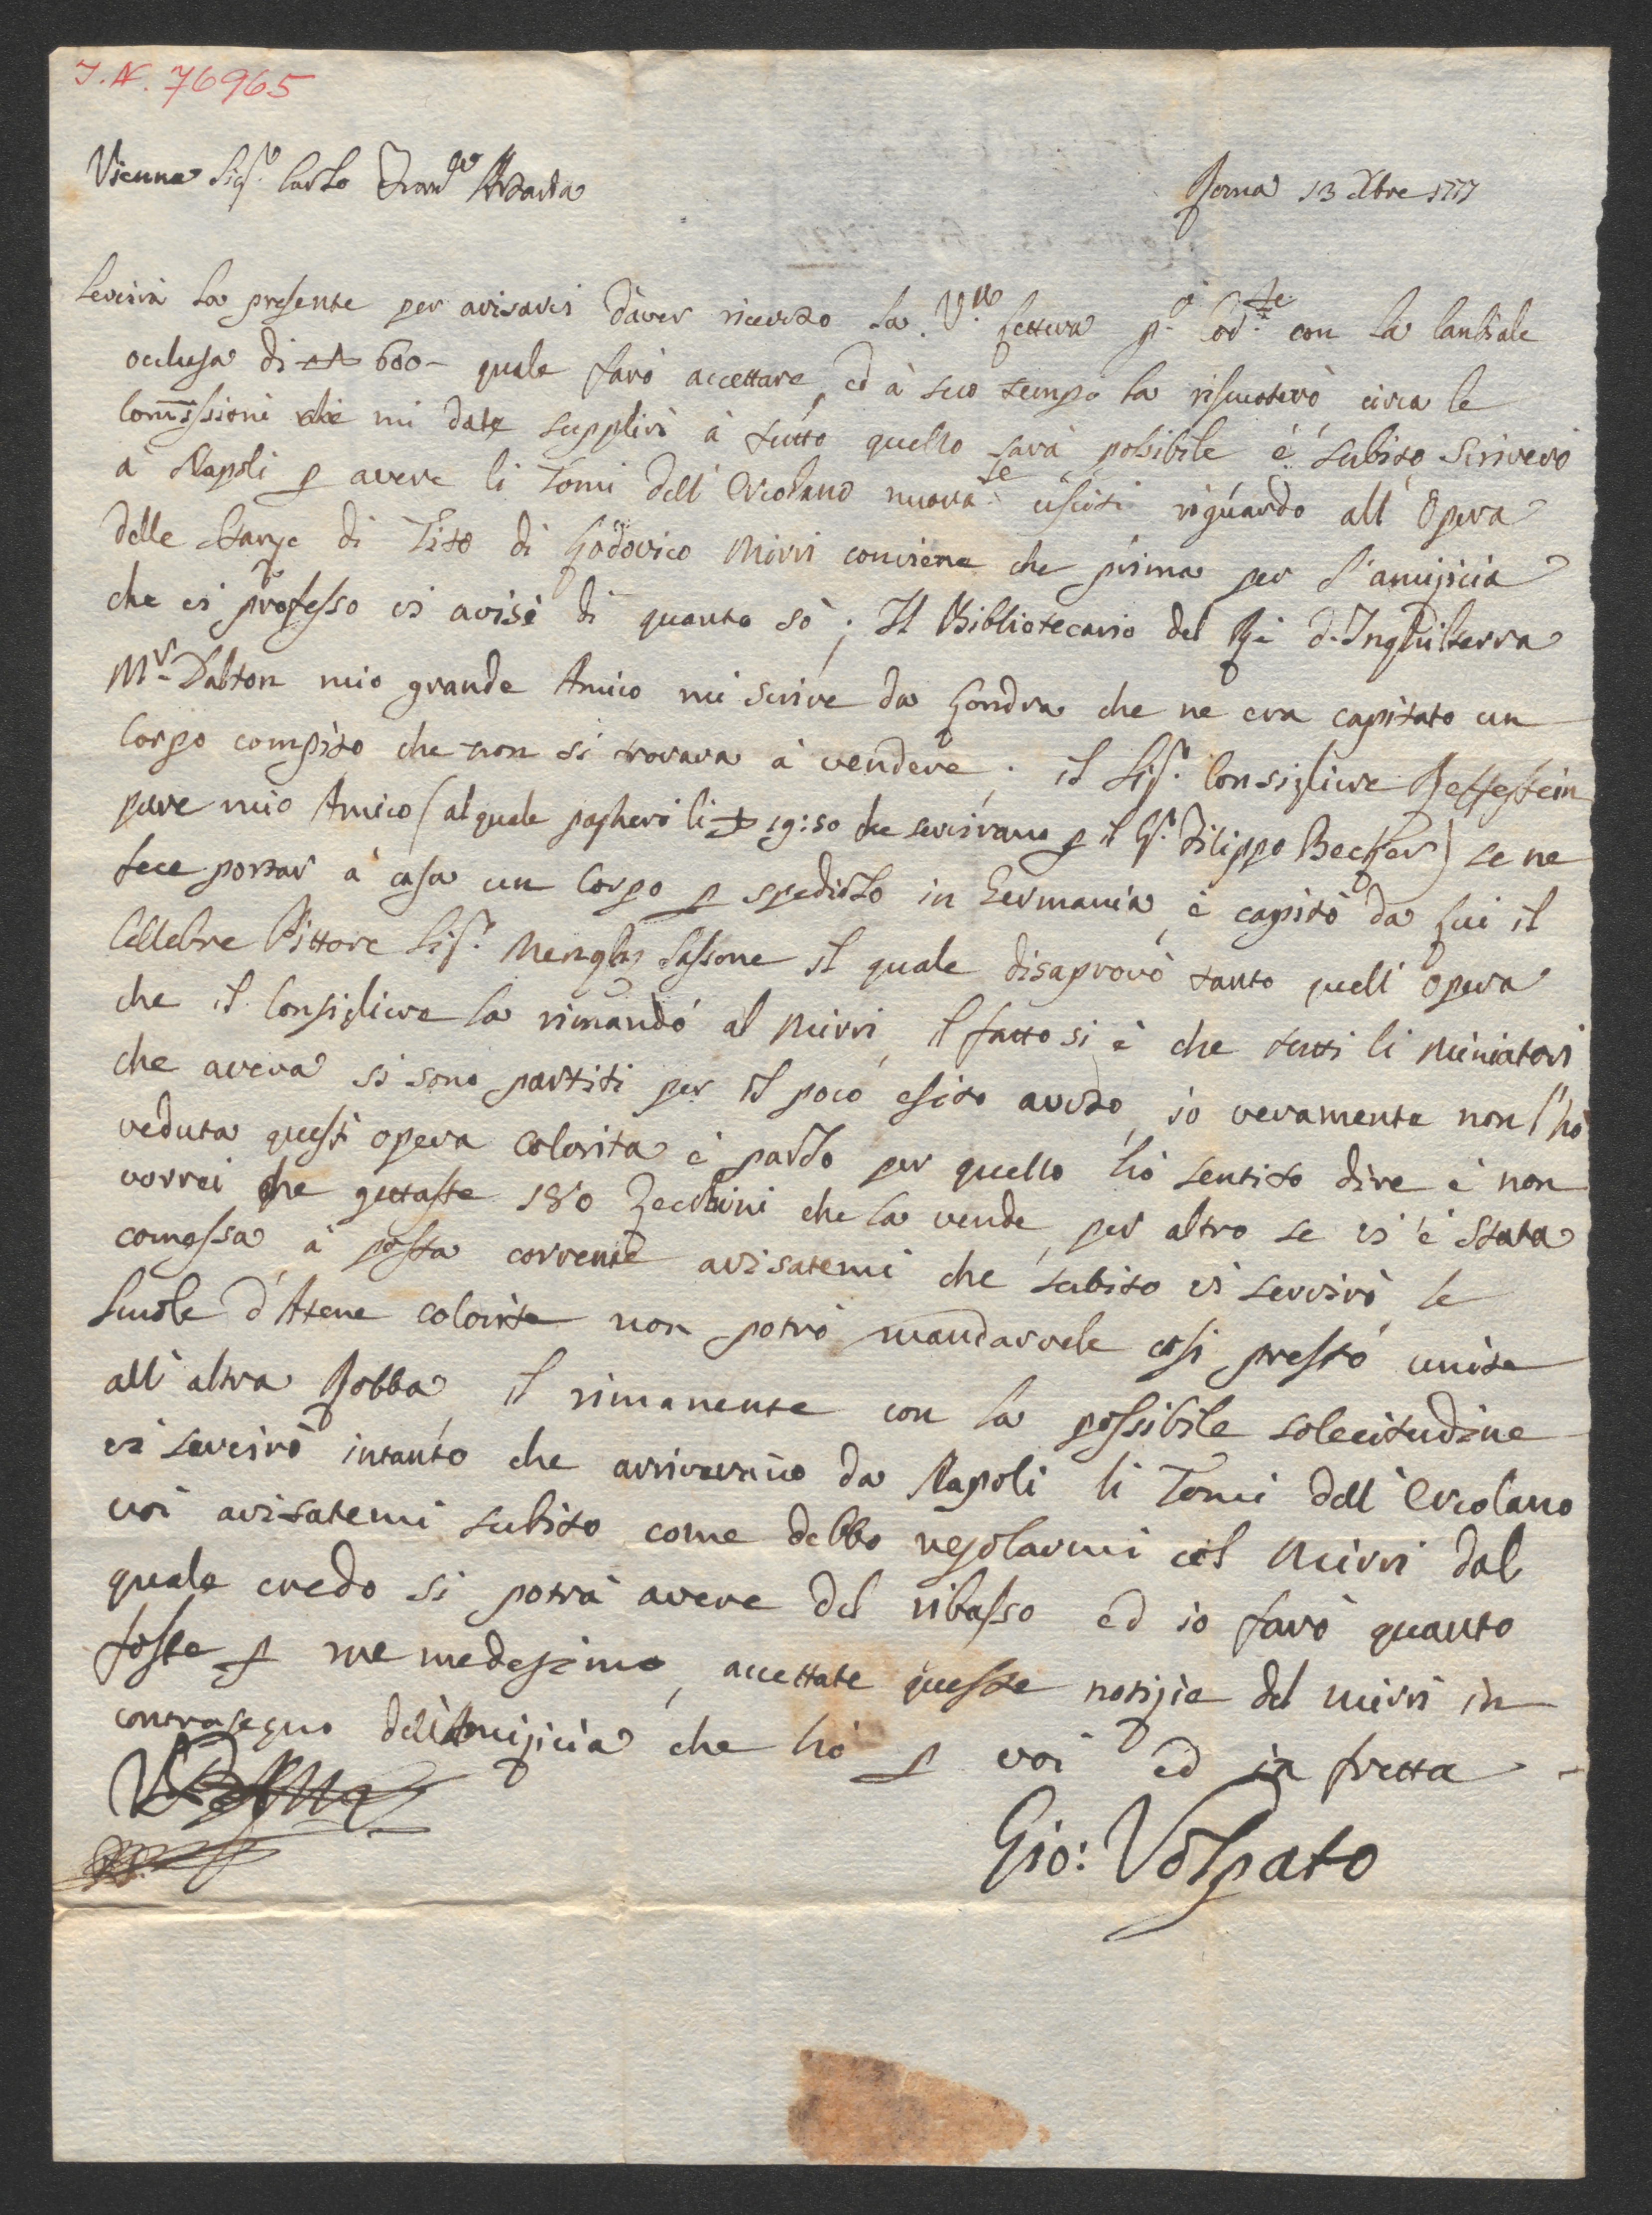 I.N. 76965
Vienna Sig.r Carlo Artaria
Roma 13 Xbre 1777
Servirà la presente per avisarvi d'aver ricevuto la V.ra lettera p.o con la Cambiale
occlusa di 600 - quale farò accettare, ed à suo tempo la riscuoterò circa le
Comissioni che mi date supplirò à tutto quello sarà possibile è subito scriverò
à Napoli p avere li Tomi dell'Ercolano nuova.te usciti riguardo all'Opera
delle Stanze di Tito di Lodovico Mirri conviene che prima per l'amizicia
che vi professo vi avisi di quanto sò; Il Bibliotecario del Rè d'Inghilterra
M.r Dalton mio grande Amico mi scrive da Londra che ne era capitato un
Corpo compito che non si trovava à vendere; il Sig.r Consigliere Reiffestein
pure mio Amico (al quale pagherò li 19:50 che servirano p il S.r Filippo Becker) se ne
fece portar à casa un Corpo p spedirlo in Germania, è capitò da lui il
Cellebre Pittore Sig.r Menghs Sassone il quale disaprovò tanto quell'opera
che il Consigliere la rimandò al Mirri, il fatto si è che tutti li Miniatori
che aveva si sono partiti per il poco esito avuto, io veramente non l'hò
veduta quest'opera colorita è parlo per quello hò sentito dire è non
vorrei che gettaste 180 Zecchini che la vende, per altro se vi è stata
comessa à posta corrente avisatemi che subito vi servirò, le
Scuole d'Atene colorite non potrò mandarvele così presto unite
all'altra Robba, il rimanente con la possibile solecitudine
vi servirò intanto che arriverano da Napoli li Tomi dell'Ercolano
voi avisatemi subito come debbo regolarmi col Mirri dal
quale credo si potrà avere del ribasso ed io farò quanto
fosse p me medesimo, accettate queste notizie del Mirri in
contrasegno dell'amizicia che hò p voi ed in fretta -
Gio: Volpato